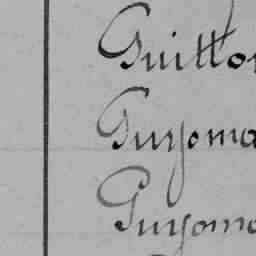 Guillo
Guyoma
Guyoma